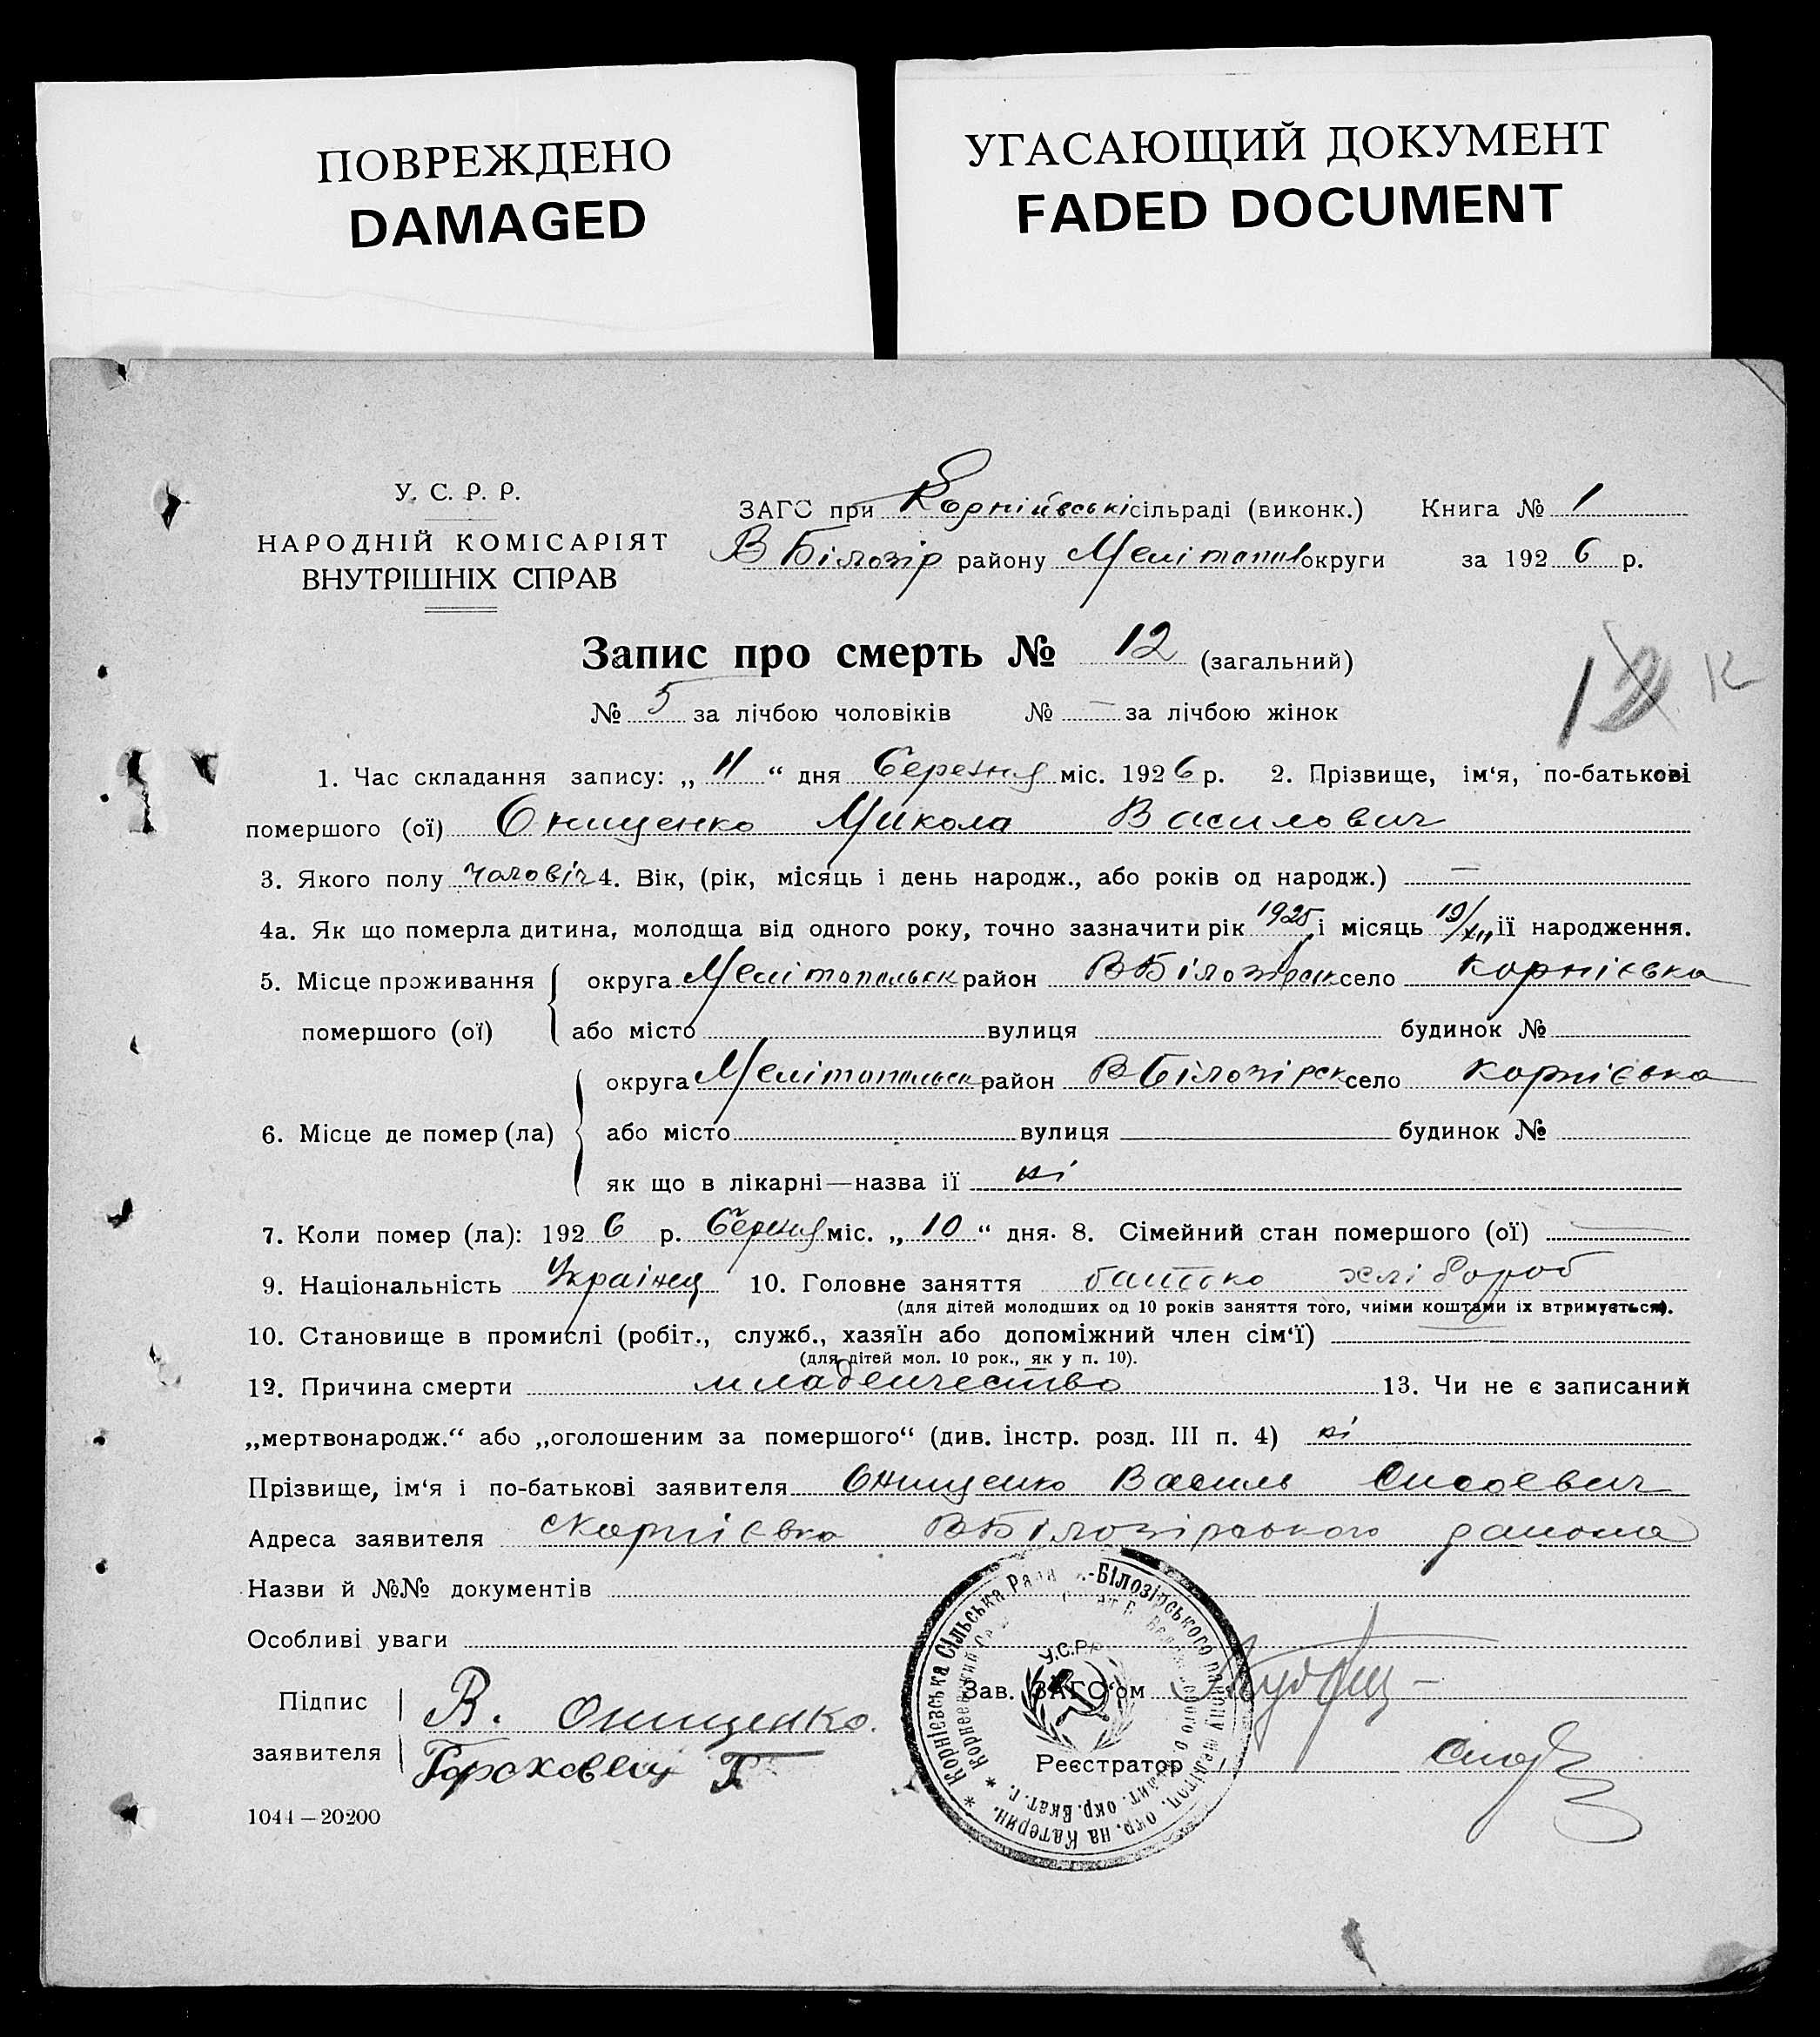 ПОВРЕЖДЕНО
DAMAGED
УГАСАЮЩИЙ ДОКУМЕНТ
FADED DOCUMENT
У. С. Р. Р.
НАРОДНІЙ КОМІСАРІЯТ
ВНУТРІШНІХ СПРАВ
ЗАГС при Корнійвські сільраді (виконк.) Книга № 1
В Білозір району Меліт округи за 192 6 р.
Запис про смерть № 12 (загальний)
№ 5 за лічбою чоловіків № — за лічбою жінок
12 К
1. Час складання запису: „ 11 “ дня березня міс. 192 6 р. 2. Прізвище, ім‘я, по-батькові
помершого (ої) Онищенко Микола Василович
3. Якого полу чоловіч 4. Вік, (рік, місяць і день народж., або років од народж.) —
4а. Як що померла дитина, молодща від одного року, точно зазначити рік 1925 і місяць 19/XII її народження.
5. Місце проживання помершого (ої) округа Мелітопольск район ВБілозірск село Корнієвка
або місто вулиця будинок №
6. Місце де помер (ла) округа Мелітопольск район ВБілозірск село Корнієвка
або місто вулиця будинок №
як що в лікарні—назва її ні
7. Коли помер (ла): 192 6 р. березня міс. „ 10 “ дня. 8. Сімейний стан помершого (ої) —
9. Національність Українец 10. Головне заняття батько хлібороб
(для дітей молодших од 10 років заняття того, чиїми коштами їх втримується).
10. Становище в промислі (робіт., служб., хазяїн або допоміжний член сім‘ї) —
(для дітей мол. 10 рок., як у п. 10).
12. Причина смерти младенчество 13. Чи не є записаний
„мертвонародж.“ або „оголошеним за помершого“ (див. інстр. розд. III п. 4) ні
Прізвище, ім‘я і по-батькові заявителя Онищенко Василь Сисоевич
Адреса заявителя с Корнієвка ВБілозірського района
Назви й №№ документів
Особливі уваги
Підпис заявителя В. Онищенко.
Гороховец Г
Зав. ЗАГС‘ом
Реєстратор
Корнієвська Сільська Рада -Білозірського району Мелітоп. окр. на Катерин.
У.С.Р.Р.
1044—20200